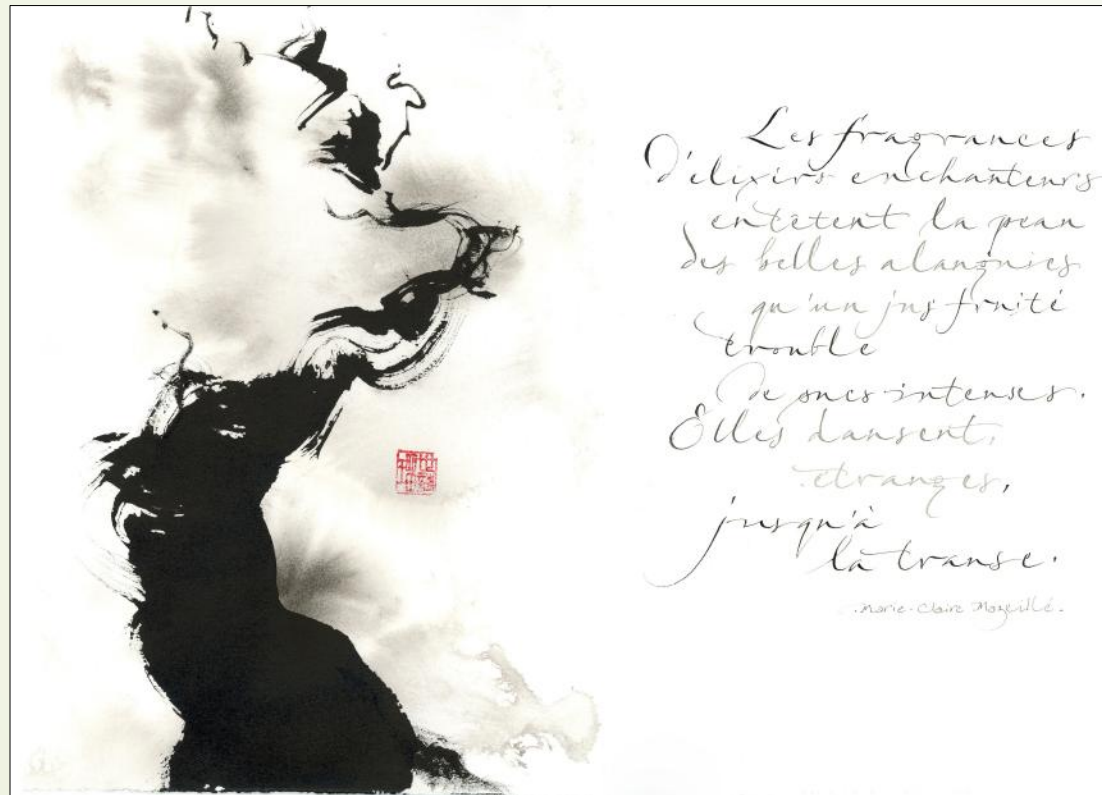 Les fragrances
d'élixirs enchanteurs
entêtent la peau
des belles alanguies
qu'un jus fruité
trouble
de sucs intenses.
Elles dansent,
étranges,
jusqu'à
la transe.
.Marie-Claire Mazeillé.